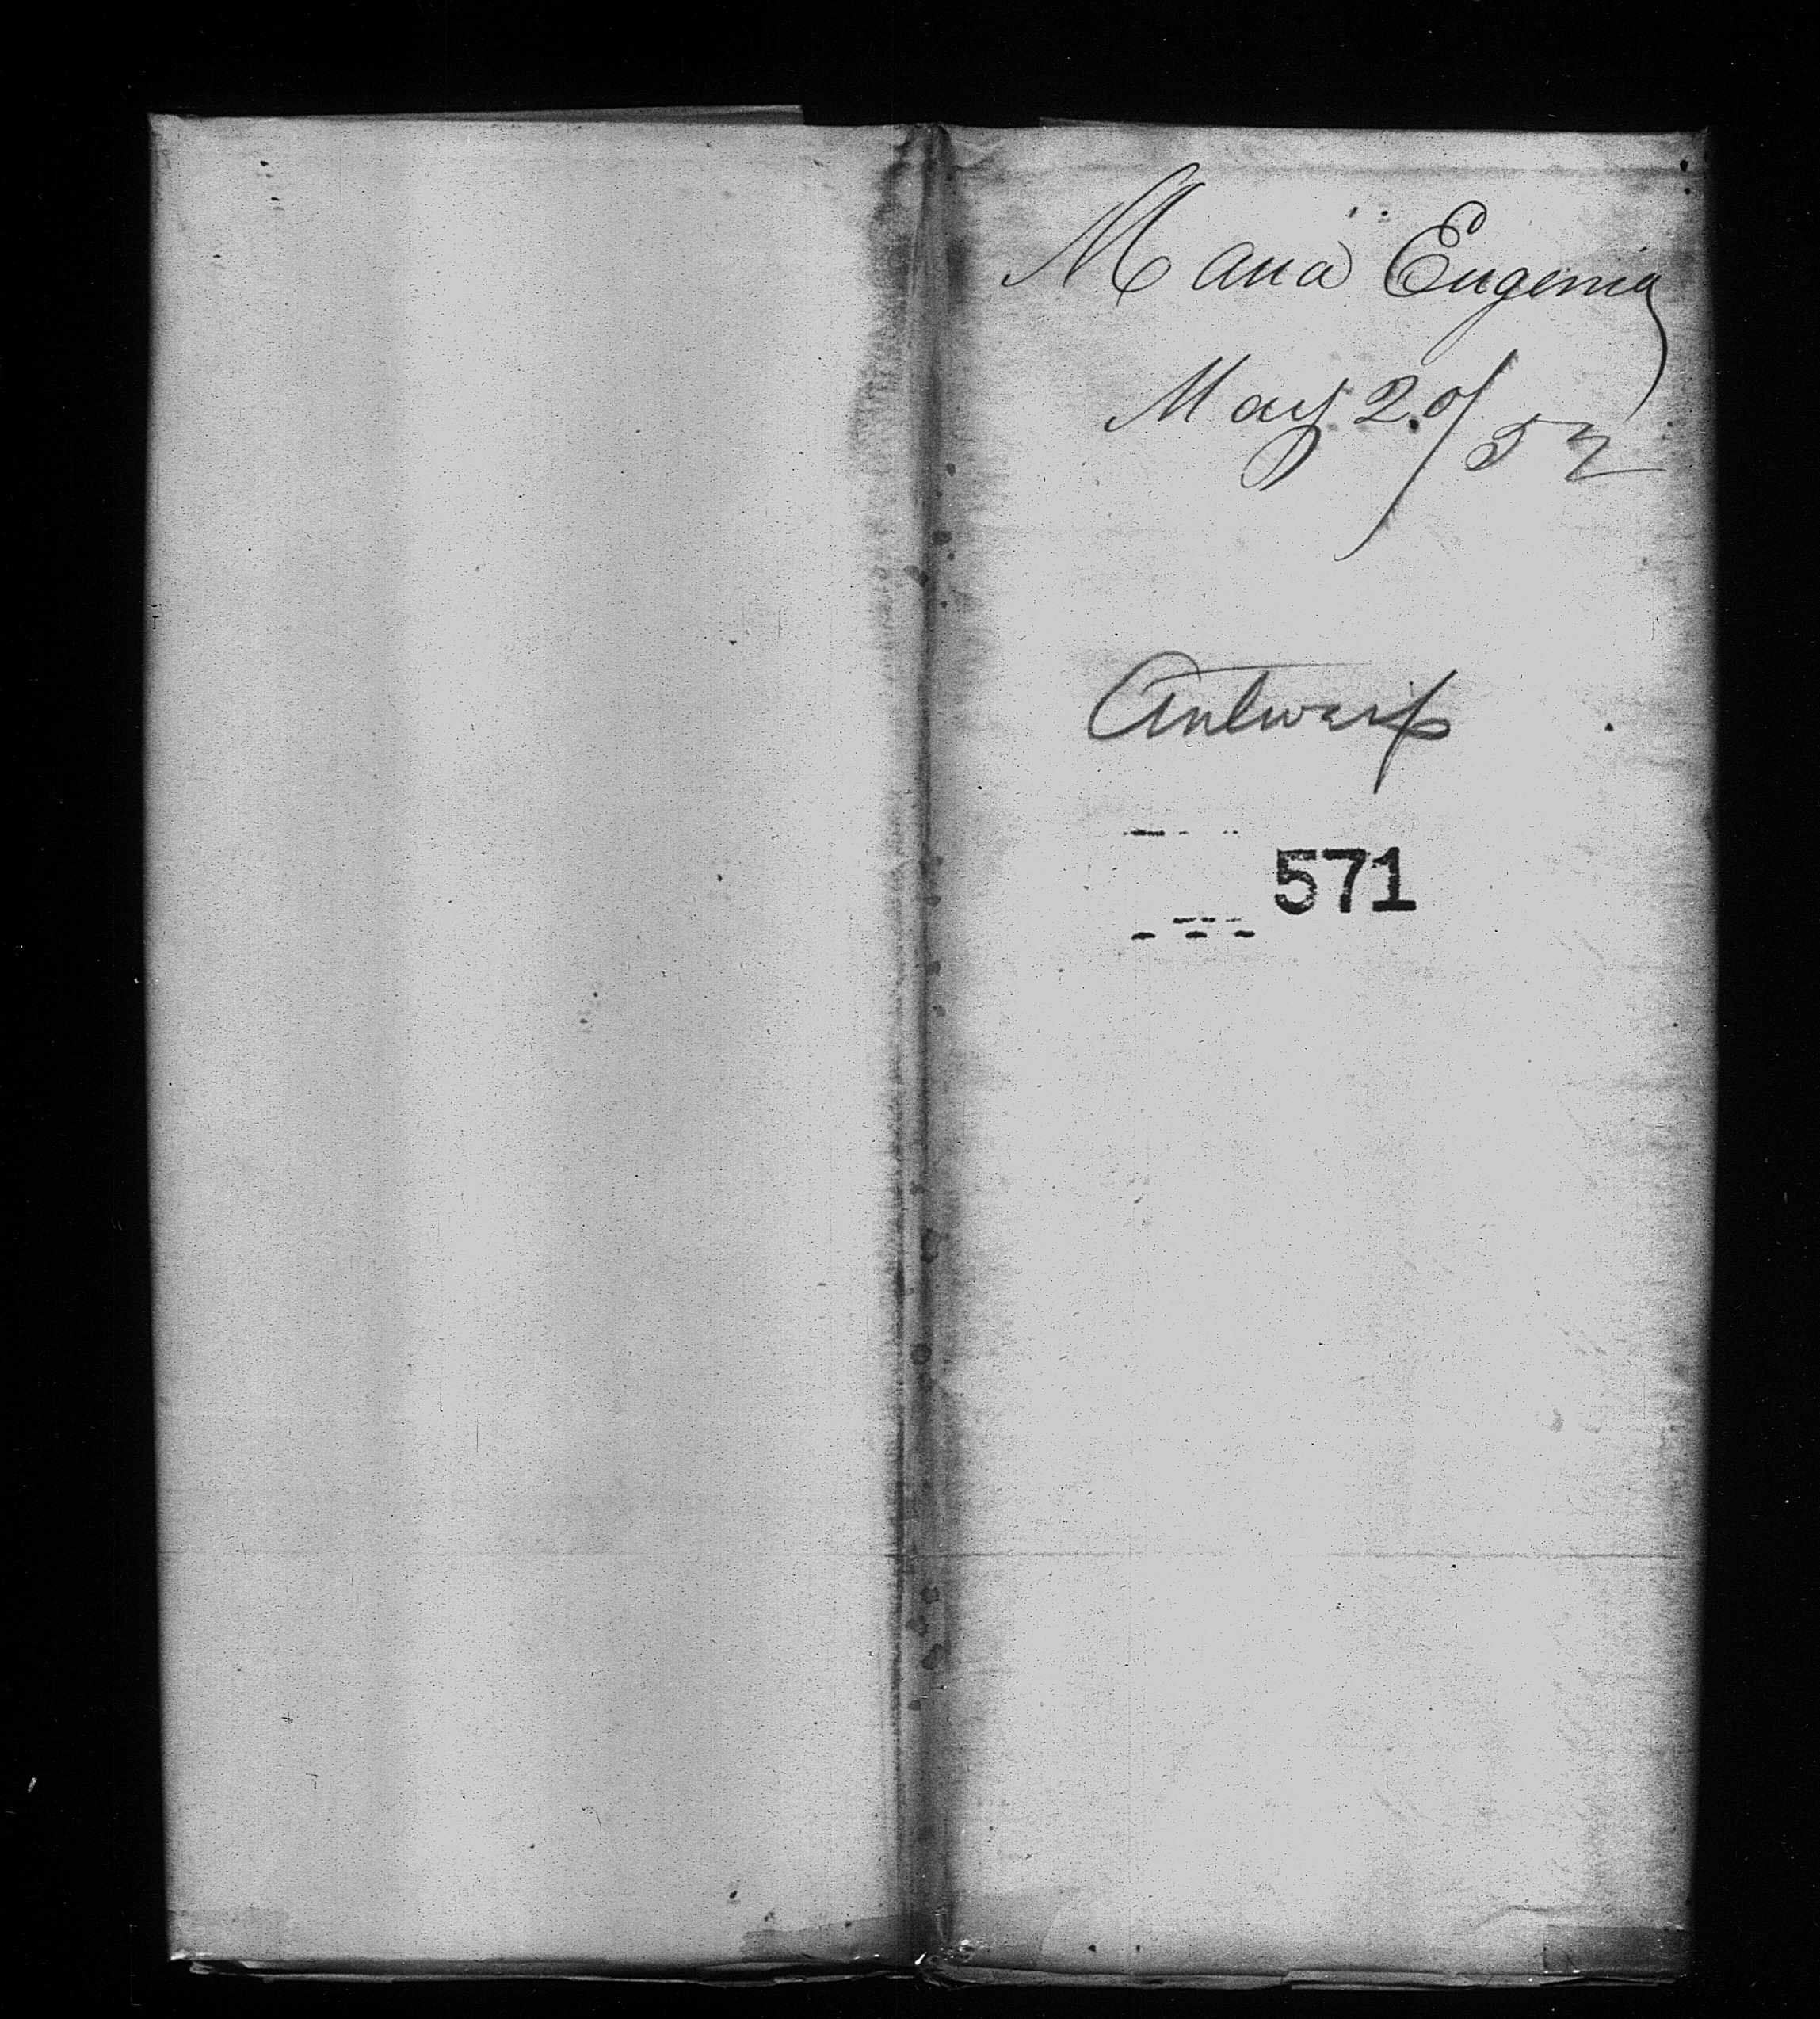 Maria Eugenia
May 20/52
Antwerp
571